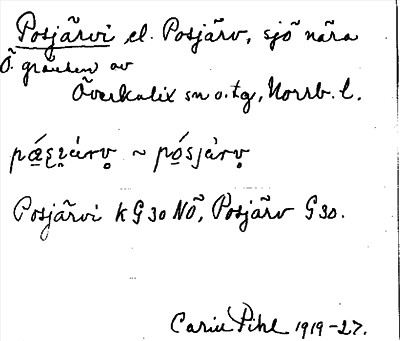 Posjärvi el. Posjärv, sjö nära
Ö. gränsen av
Överkalix sn o. tg, Norrb. l.
~ pó̱sjàrv̥
Posjärvi k G 30 NÖ, Posjärv G 30.
Carin Pihl 1919-27.